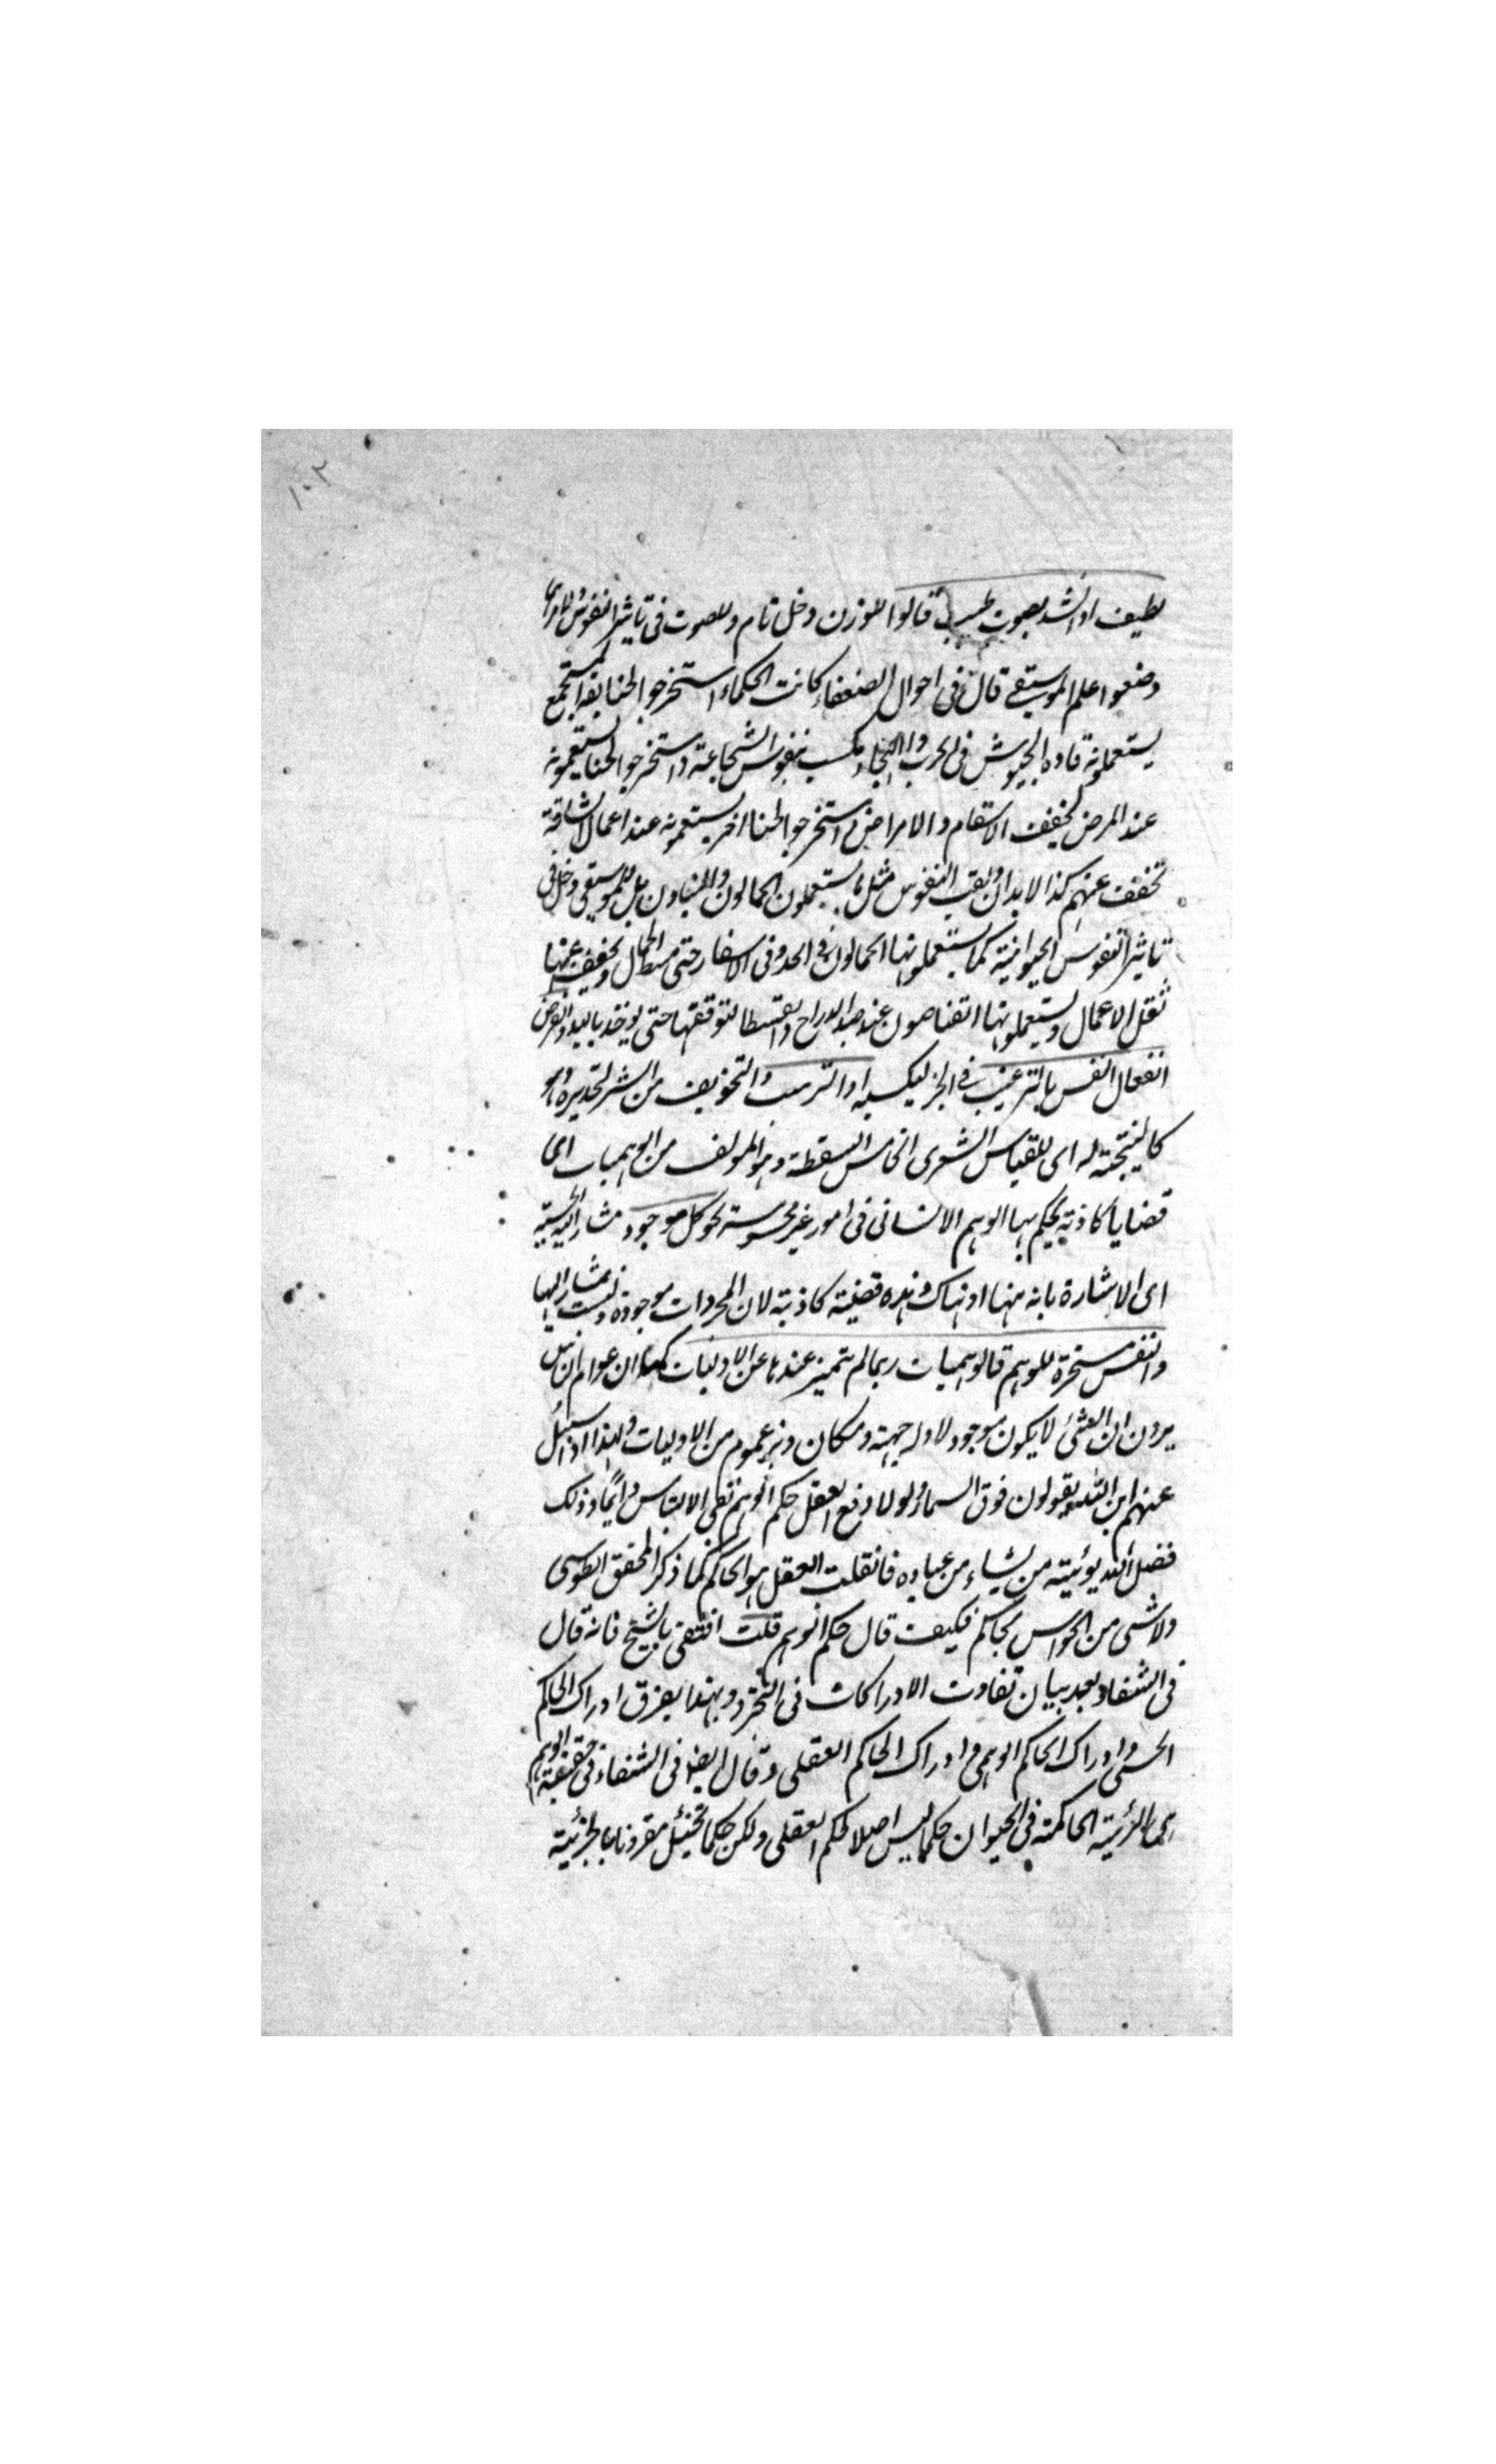 ١٠٢
لطيف او انشد بصوت طيب قالوا للوزن دخل تام وللصوت فى تاثير النفوس
وضعوا علم الموسيقى قال فى احوال الضعفاء كانت الحكماء استخرجوا لحنا
يستعملونه قاده الجيوش فى الحرب والهيجاء يكسب نفوس الشجاعة واستخرجوا لحنا يستعملونه
عند المرض لخفف الاسقام والامراض واستخرجوا لحنا اخر يستعملونه عند اعمال الشاقة
تخفف عنهم كذ الابدان وتعب النفوس مثل ما يستعملون الحمالون والبناون بل للموسيقى دخل فى
تاثير النفوس الحيوانية كما يستعملونها الحمالون فى الحدو فى الاسفار حتى الجمال ويخفف عنها
ثقل الاعمال ويستعملونها القناصون عند صيد الدراج والقطا حتى يوخذ باليد والغرض
انفعال النفس بالترغيب فى الخير ليكسبه او الترهيب والتخويف من الشر وهو
كالنتيجة له اى للقياس الشعرى الخامس السفسطة وهو المولف من الوهميات اى
قضايا كاذبة يحكم بها الوهم الانسانى فى امور غير محسوسة نحو كل موجود مشار اليه
اى الاشارة بانه ههنا او هناك وهذه قضية كاذبة لان المجردات موجودة وليست بمشار اليها
والنفس مسخرة للوهم فالوهميات ربما لم تتميز عندها عن الاوليات ان عوام الناس
يرون ان الشئ لا يكون موجود الا وله جهة ومكان من الاوليات ولهذا اذا سئل
عنهم اين الله يقولون فوق السماء ولولا دفع العقل حكم الوهم بقى الالتباس دائما وذلك
فضل الله يوتيه من يشاء من عباده فان قلت العقل هو الحاكم كما ذكر المحقق الطوسى
ولا شى من الحواس بحاكم فكيف قال حكم الوهم قلت اقتفى بالشيخ فانه قال
فى الشفاء بعد بيان تفاوت الادراكات فى التجرد وبهذا يفرق ادراك الحاكم
الحسى وادراك الحاكم الوهمى وادراك الحاكم العقلى وقال ايضا فى الشفاء فى حقيقة الوهم
هى الرئيسة الحاكمة فى الحيوان حكما ليس فصلا كالحكم العقلى ولكن حكما تخييليا مقرونا بالجزئية